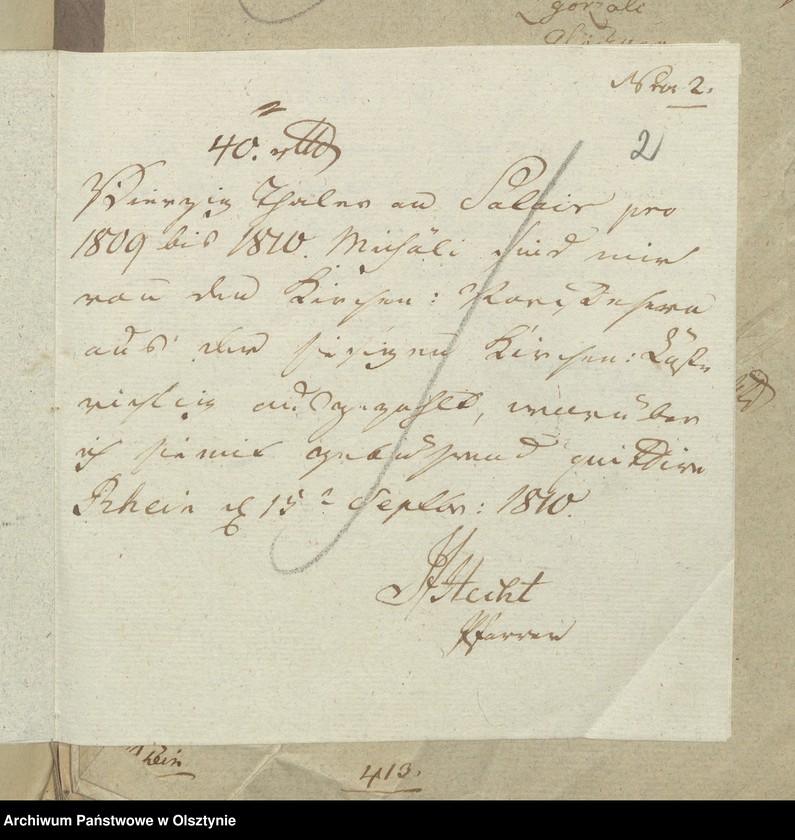 Nro 2.
2
40. rthl
Vierzig Thaler an Salair pro
1809 bis 1810. Michäli sind mir
von den Kirchen: Vorstehern
aus der hiesigen Kirchen: Casse
richtig ausgezahlt, worüber
ich hiemit gebührend quittire
Rhein d 15t Septbr: 1810.
Hecht
Pfarrer
413.
Archiwum Państwowe w Olsztynie